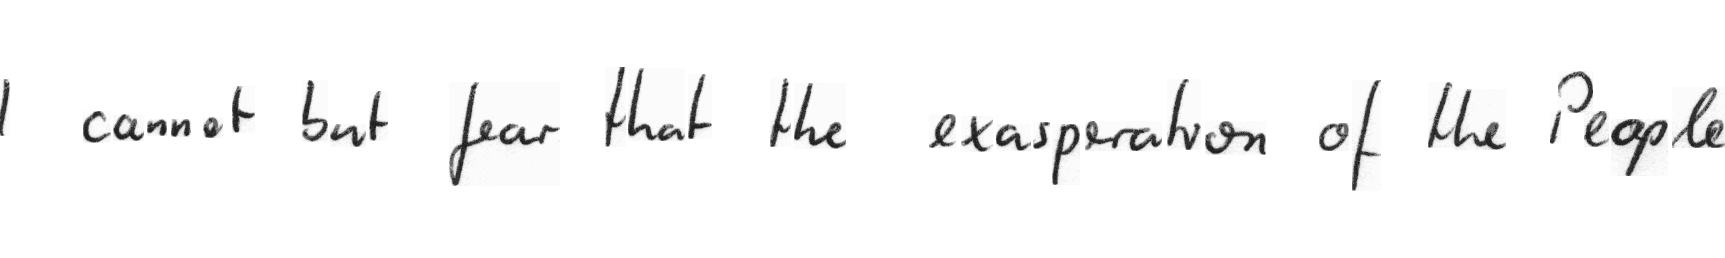 I cannot but fear that the exasperation of the People